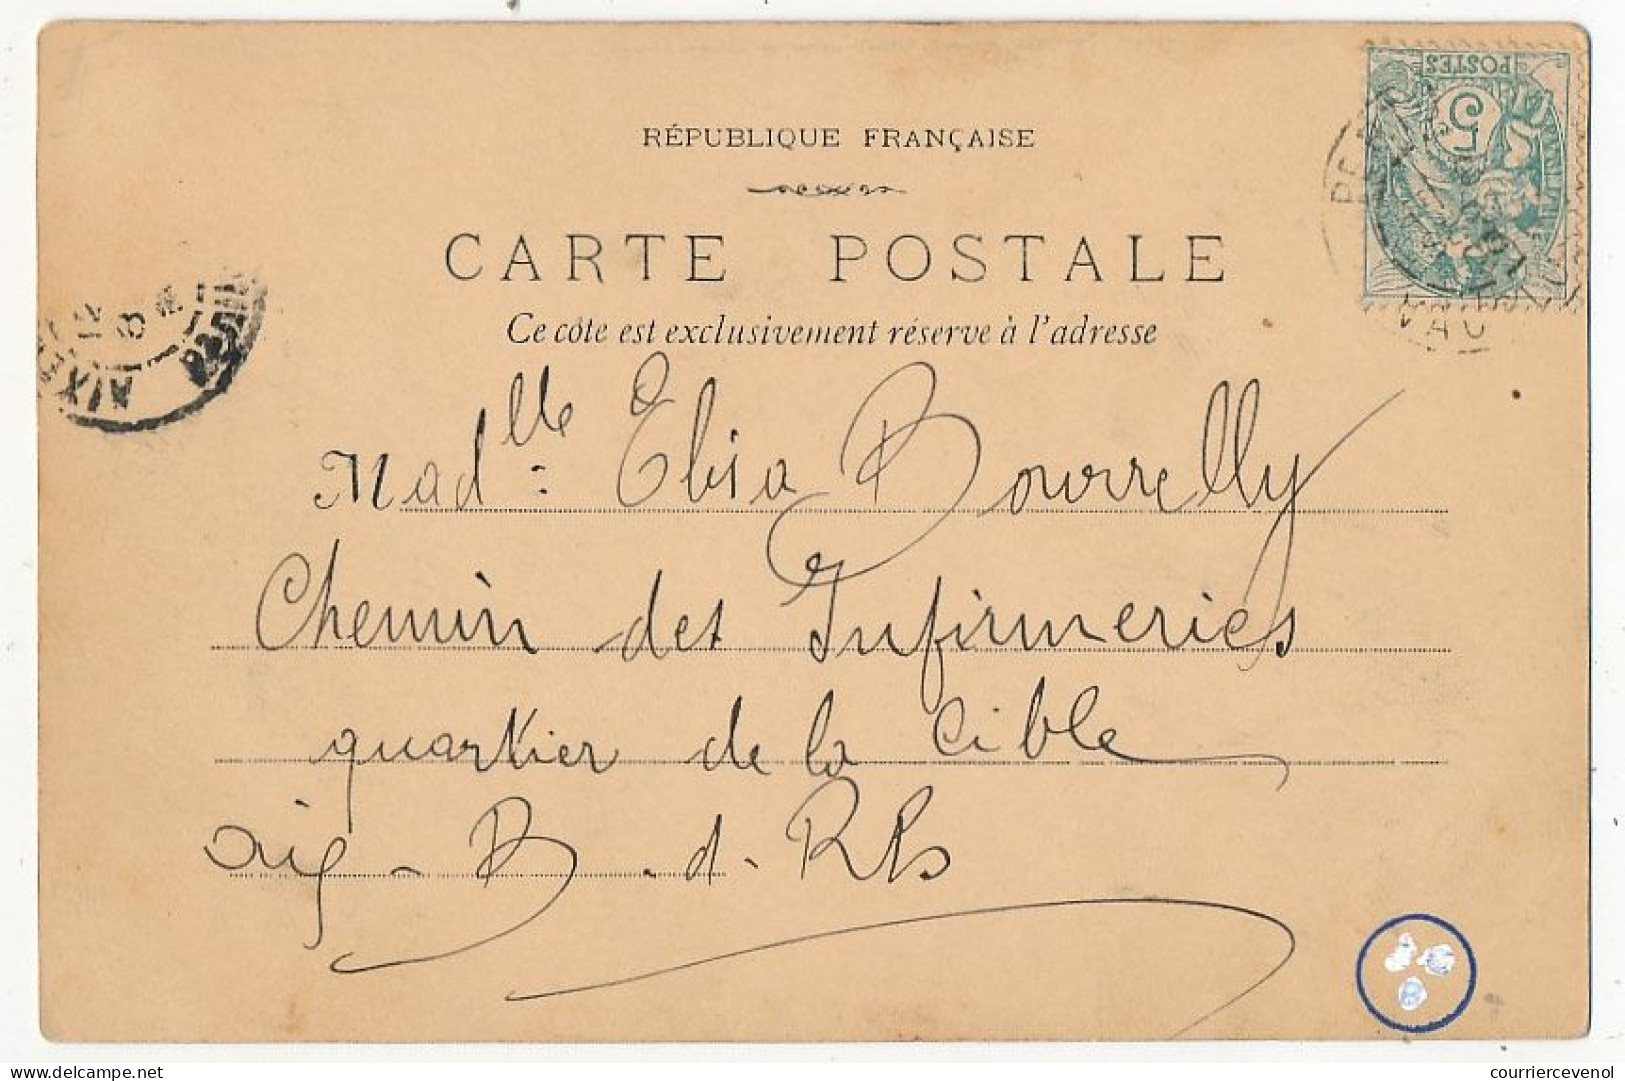 RÉPUBLIQUE FRANÇAISE
CARTE POSTALE
Ce côté est exclusivement réservé à l'adresse
POSTES
5
VAU
AIX
Madlle: Elisa Bourrelly
Chemin des Infirmeries
quartier de la Cible
Aix - B. d. Rh
courriercevenol